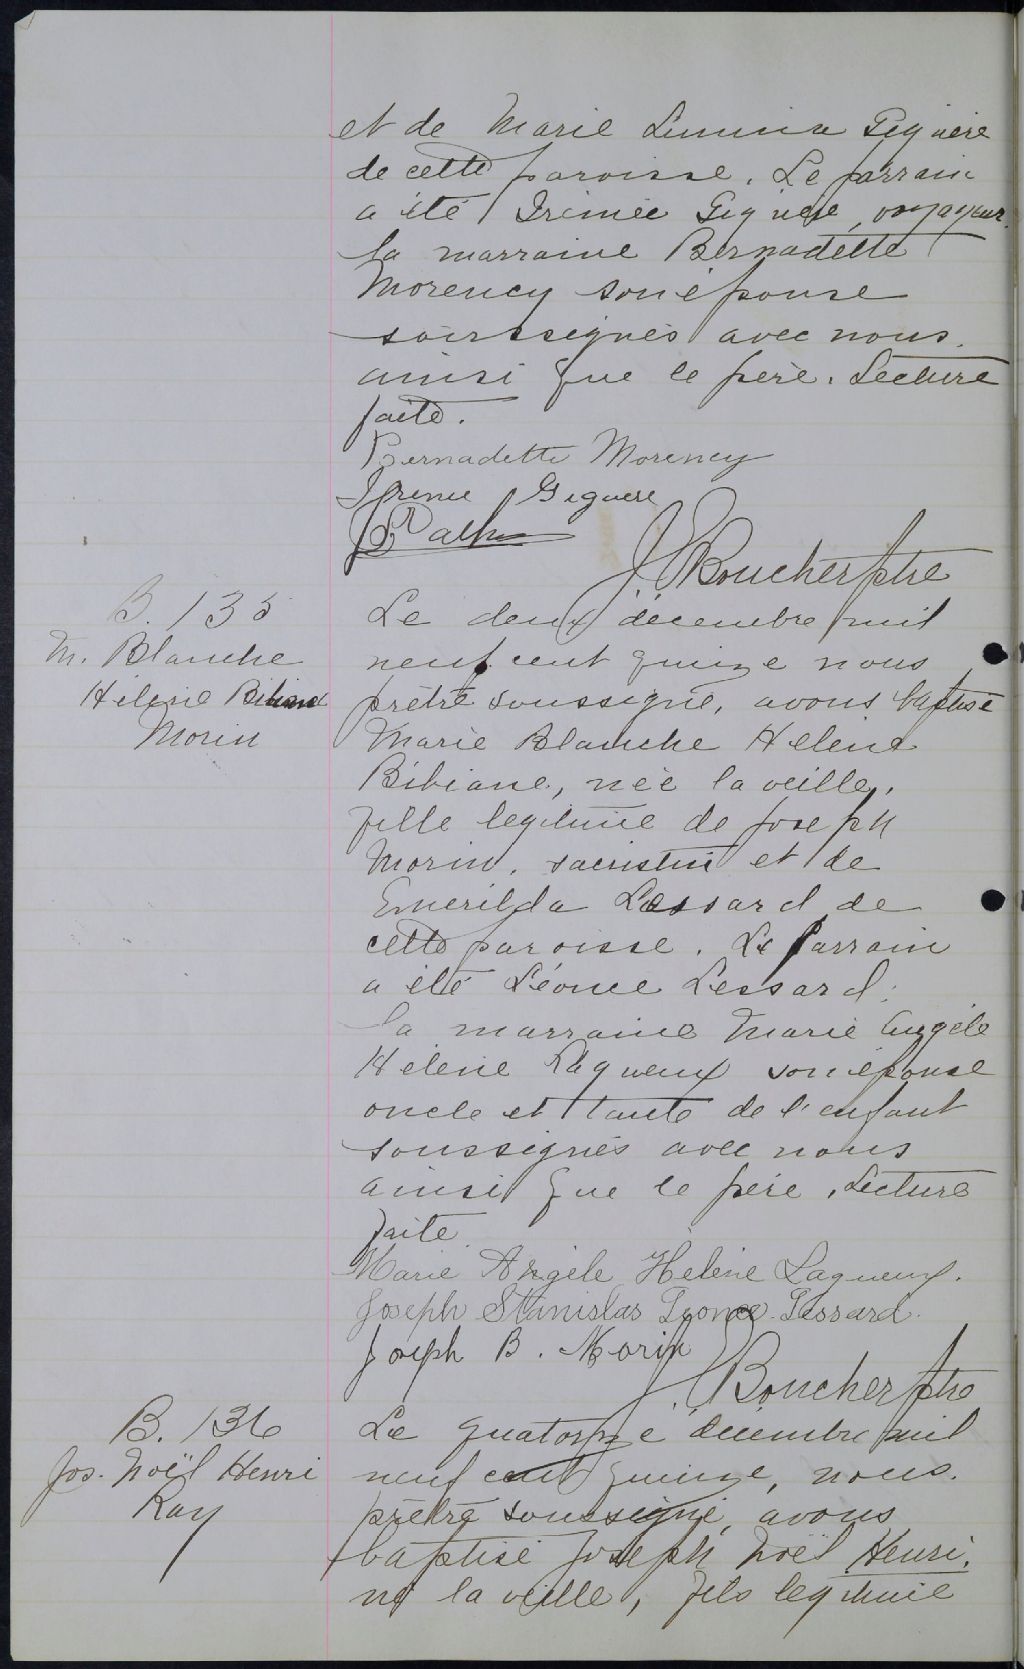 et de Marie Lumina Giguère
de cette paroisse. Le parrain
a été Irénée Giguère, voyageur.
la marraine Bernadette
Morency son épouse
soussignés avec nous.
ainsi que le père. Lecture
faite.
Bernadette Morency
Irénée Giguere
J. Boucher ptre
B. 135
M. Blanche
Hélène Bibiane
Morin
Le deux décembre mil
neuf cent quinze nous
prêtre soussigné, avons baptisé
Marie Blanche Hélène
Bibiane, née la veille,
fille légitime de Joseph
Morin, sacristin et de
Emerilda Lessard de
cette paroisse. Le parrain
a été Léonce Lessard;
la marraine Marie Angèle
Hélène Lagueux son épouse
oncle et tante de l'enfant
soussignés avec nous
ainsi que le père. Lecture
faite
Marie Angèle Hélène Lagueux.
Joseph Stanislas Léonce Lessard.
Joseph B. Morin
J. Boucher ptre
B. 136
Jos. Noël Henri
Ray
Le quatorze décembre mil
neuf cent quinze, nous.
prêtre soussigné, avons
baptisé Joseph Noël Henri,
né la veille, fils légitime